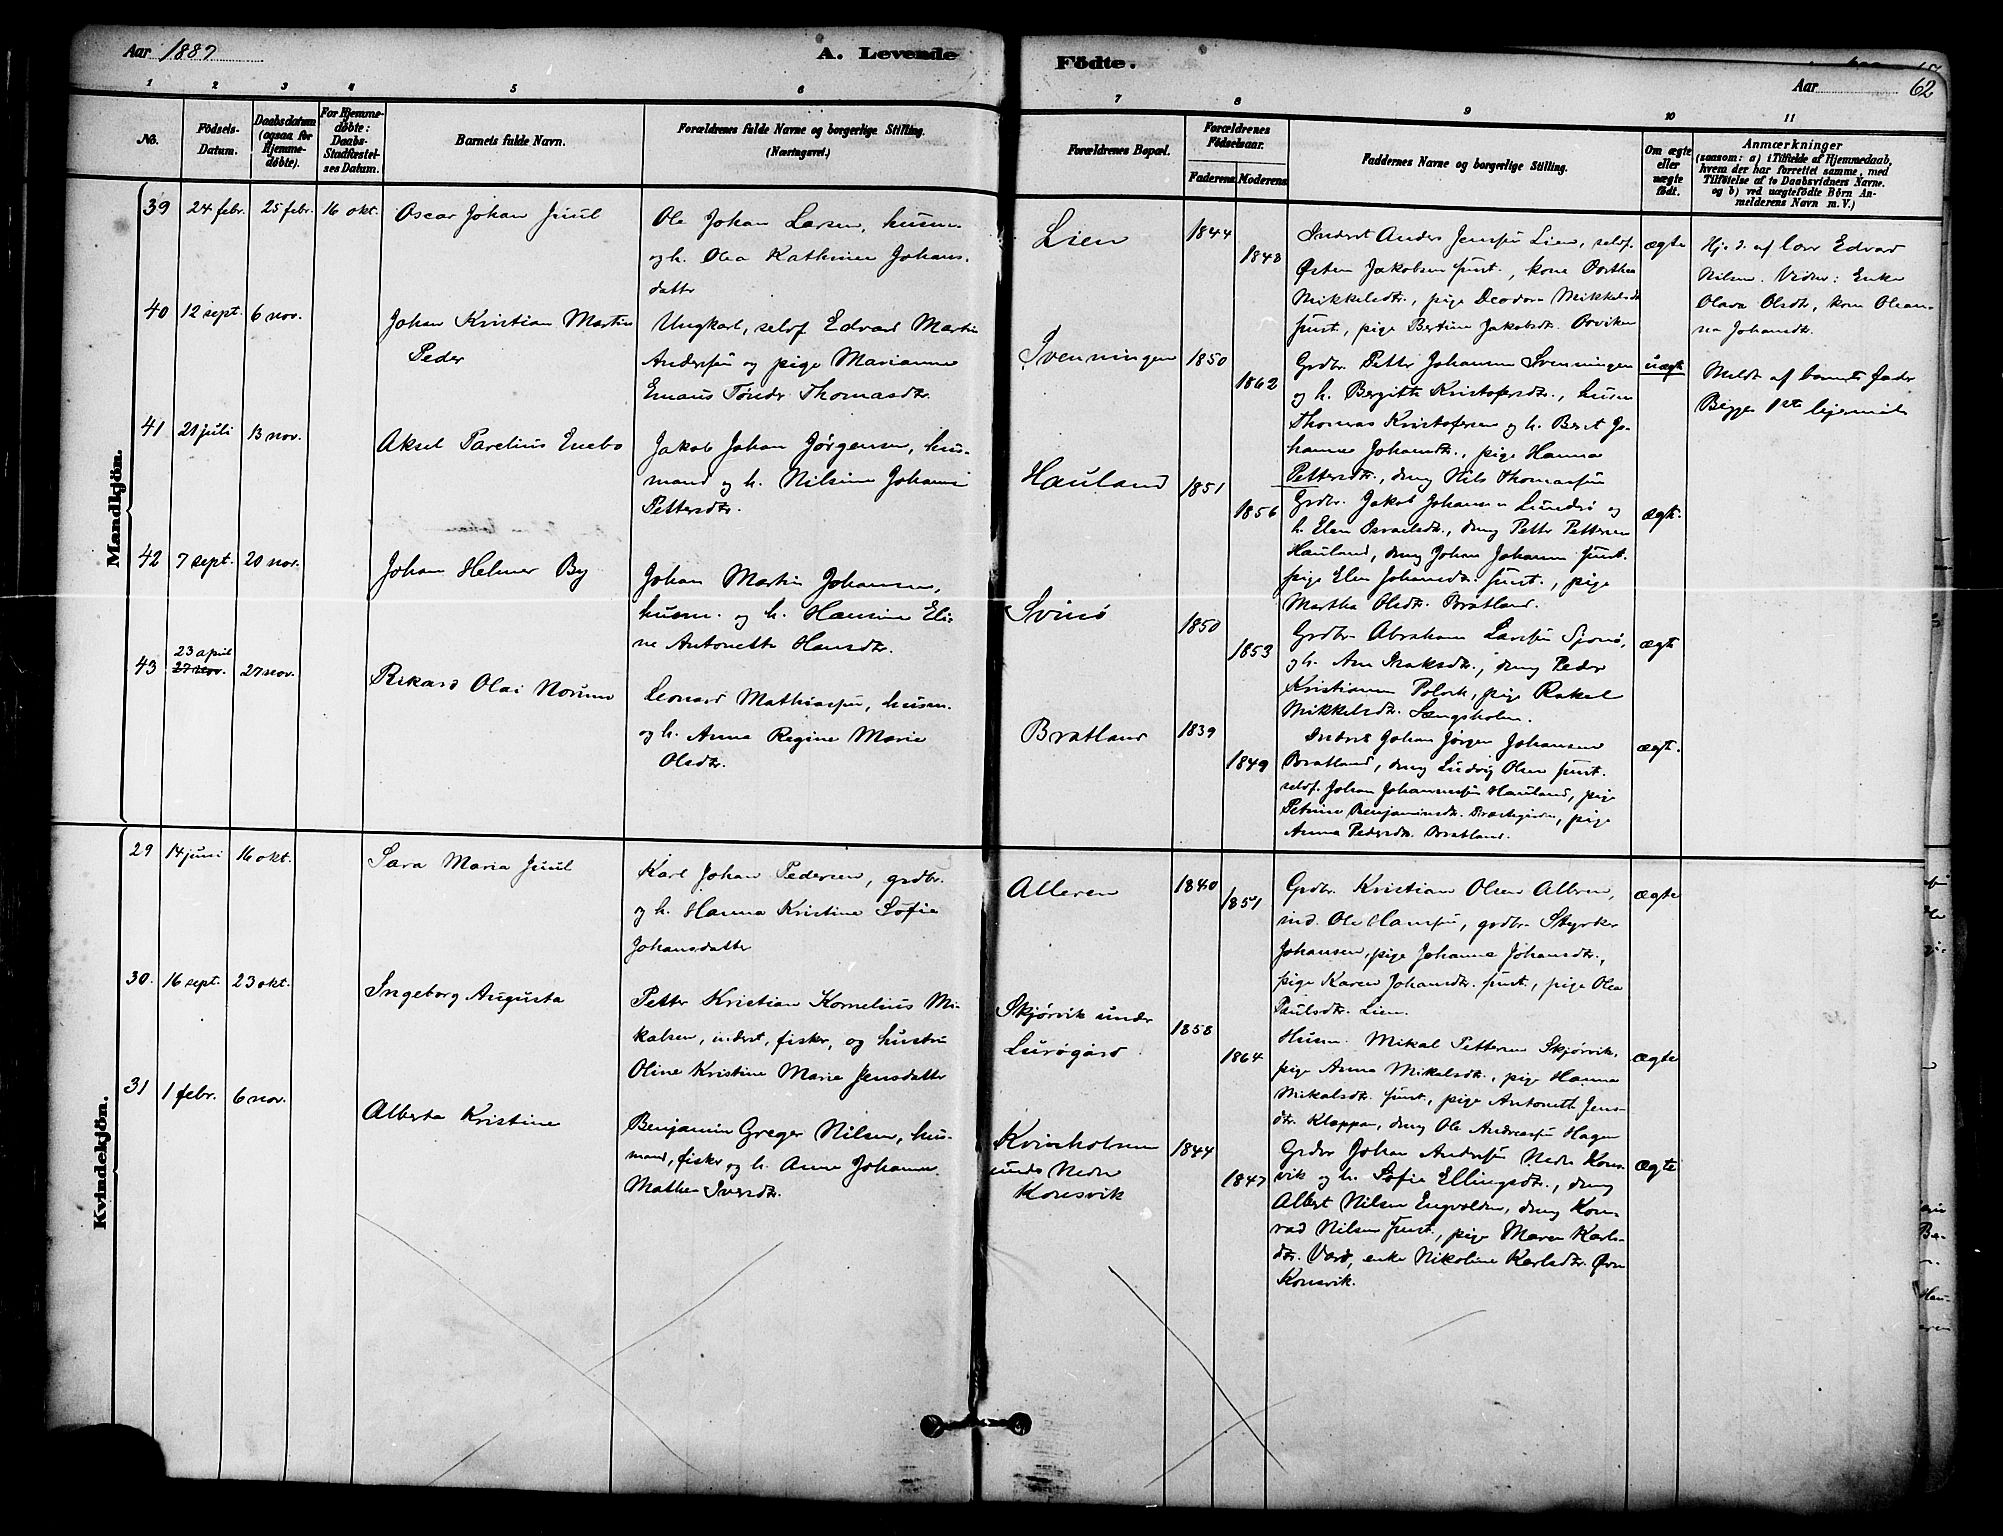 Aar 1887
A. Levende
Födte.
Aar
62
1
2
3
4
5
6
7
8
9
10
11
No.
Födsels-
Datum.
Daabsdatum
(ogsaa for
Hjemme-
døbte).
For Hjemme-
døbte:
Daabs-
Stadfæstel-
ses Datum.
Barnets fulde Navn.
Forældrenes fulde Navne og borgerlige Stilling.
(Næringsvei.)
Forældrenes Bopæl.
Forældrenes
Födselsaar.
Faderens
Moderens
Faddernes Navne og borgerlige Stilling.
Om ægte
eller
uægte
födt.
Anmærkninger
(saasom: a) i Tilfælde af Hjemmedaab,
hvem der har forrettet samme, med
Tilføielse af to Daabsvidners Navne.
og b) ved uægtefödte Börn An-
melderens Navn m. V.)
Mandkjön.
39
24 febr.
25 febr.
16 okt.
Oscar Johan Juul
Ole Johan Larsen, husm.
og h. Olea Kathrine Johans-
datter
Lien
1844
1848
Inderst Anders Jensen Lien, selvf.
Østen Jakobsen smst., kone Dorthea
Mikkelsdtr., pige Deodora Mikkelsdtr
smst., pige Bertine Jakobsdtr.
ægte
Hj. d. af lær Edvard
Nilsen. Vidner: Enke
Olava Olsdtr, kone Olean-
na Johansdtr.
40
12 sept.
6 nov.
Johan Kristian Martin
Peder
Ungkarl, selvf Edvard Martin
Andersen og pige Marianne
Emaus Tønder Thomasdtr.
Svenningen
1850
1862
Grdbr. Petter Johansen Svenningen
og h. Bergitte Kristofersdtr., husm
Thomas Kristofersen og h. Berit Jo-
hanna Johansdtr., pige Hanna
Pettersdtr., dreng Nils Thomassen
uægte
Meldt af barnets fader
Begges 1ste leiermaal
41
21 juli
13 nov.
Aksel Parelius Enebo
Jakob Johan Jørgensen, hus-
mand og h. Nilsine Johanna
Pettersdtr.
Hauland
1851
1856
Grdbr. Jakob Johansen Lundø og
h. Elen Israelsdtr., dreng Petter Pettersen
Hauland, dreng Johan Johansen smst.
pige Elen Johansdtr. smst., pige
Martha Olsdtr. Bratland.
ægte.
42
7 sept.
20 nov.
Johan Helmer By
Johan Martin Johansen,
husm. og h. Hansine Eli-
ne Antonette Hansdtr.
Svinø
1850
1853
Grdbr Abraham Larsen Sjonø,
og h. Ane Isaksdtr., dreng Peder
Kristiansen Polsk, pige Rakel
Mikkelsdtr. Sængsholm.
ægte
43
23 april
27 nov.
27 nov.
Rikard Olai Norum
Leonard Mathiassen, husm.
og h. Anna Regine Marie
Olsdtr.
Bratland
1839
1849
Inderst Johan Jørgen Johansen
Bratland, dreng Ludvig Olsen smst.
selvf. Johan Johannessen Hauland, pige
Petrine Benjaminsdtr. , pige
Anna Pedersdtr. Bratland.
ægte.
Kvindekjön.
29
14 juni
16 okt.
Sara Maria Juul
Karl Johan Pedersen, grdbr.
og h. Hanna Kristine Sofie
Johansdatter
Alleren
1840
1851
Grdbr. Kristian Olsen Alleren,
ind. Ole Hansen, grdbr. Styrker
Johansen, pige Johanna Johansdtr.,
pige Karen Johansdtr. smst., pige Olea
Paulsdtr. Lien.
ægte
30.
16 sept.
23 okt.
Ingeborg Augusta
Petter Kristian Kornelius Mi-
kalsen, inderst, fisker, og hustru
Oline Kristine Marie Jensdatter
Skjørvik under
Lurøgård.
1858
1864
Husm. Mikal Pettersen Skjørvik,
pige Anna Mikalsdtr., pige Hanna
Mikalsdtr. smst., pige Antonette Jens-
dtr. Kloppen, dreng Ole Andreassen Hagen
ægte
31
1 febr.
6 nov.
Alberta Kristine
Benjamin Greger Nilsen, hus-
mand, fisker og h. Anne Johanna
Mathea Iversdtr.
Kvinholmen
under Nedre
Konsvik
1844
1847
Grdbr Johan Andersen Nedre Kons-
vik og h. Sofie Ellingsdtr., dreng
Albert Nilsen Engvolden, dreng Kon-
rad Nilsen smst., pige Maren Karls-
dtr. Varø, enke Nikoline Karlsdtr. Øvre
Konsvik.
ægte